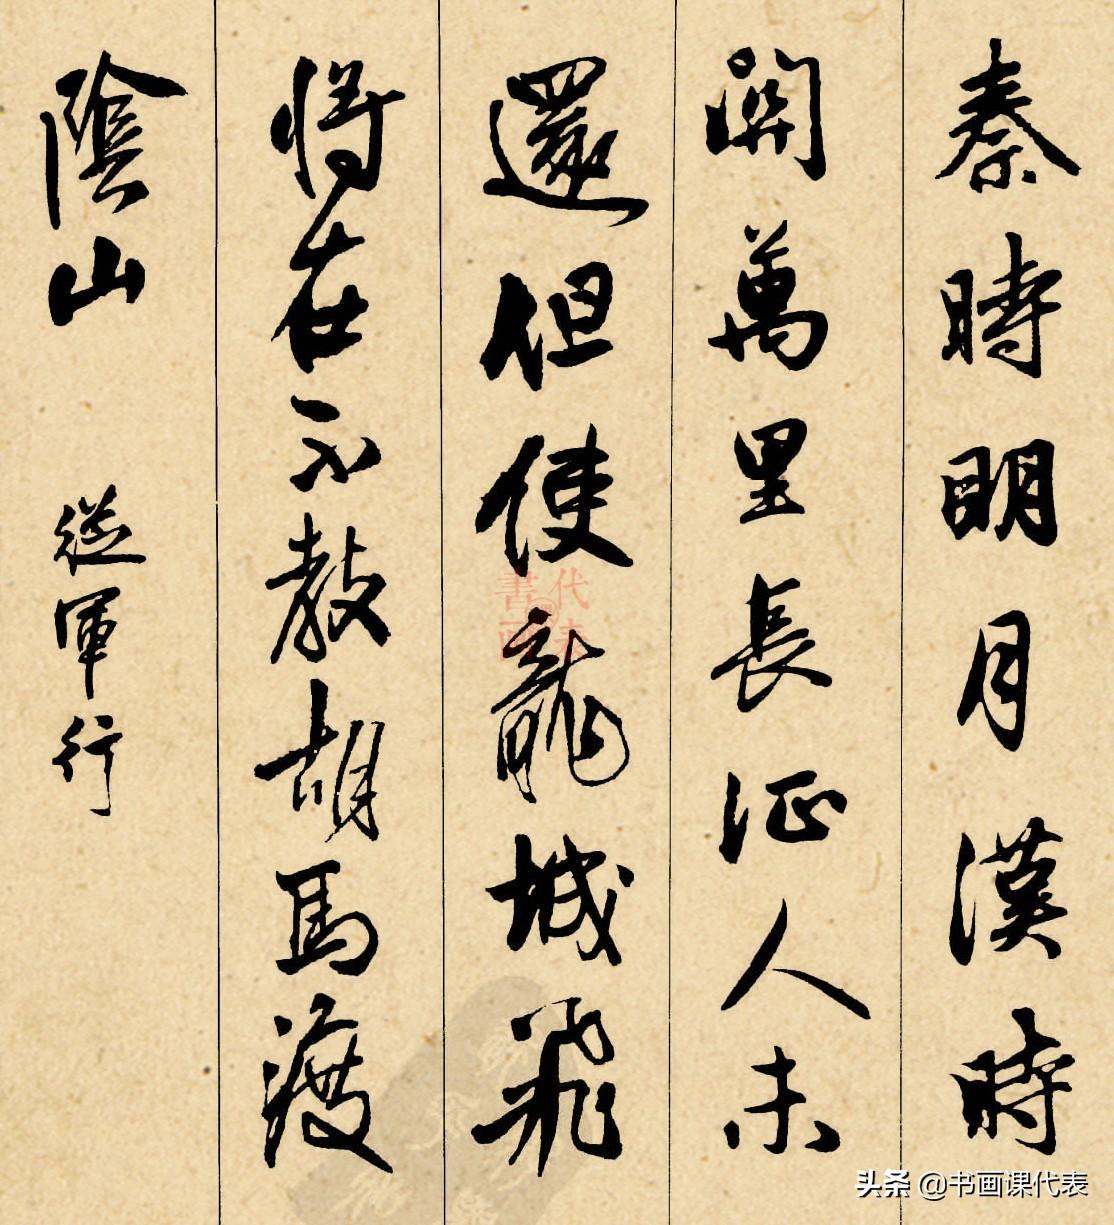 秦時明月漢時
關萬里長征人未
還但使龍城飛
將在不教胡馬渡
陰山 從軍行
書画
代表
头条 @书画课代表